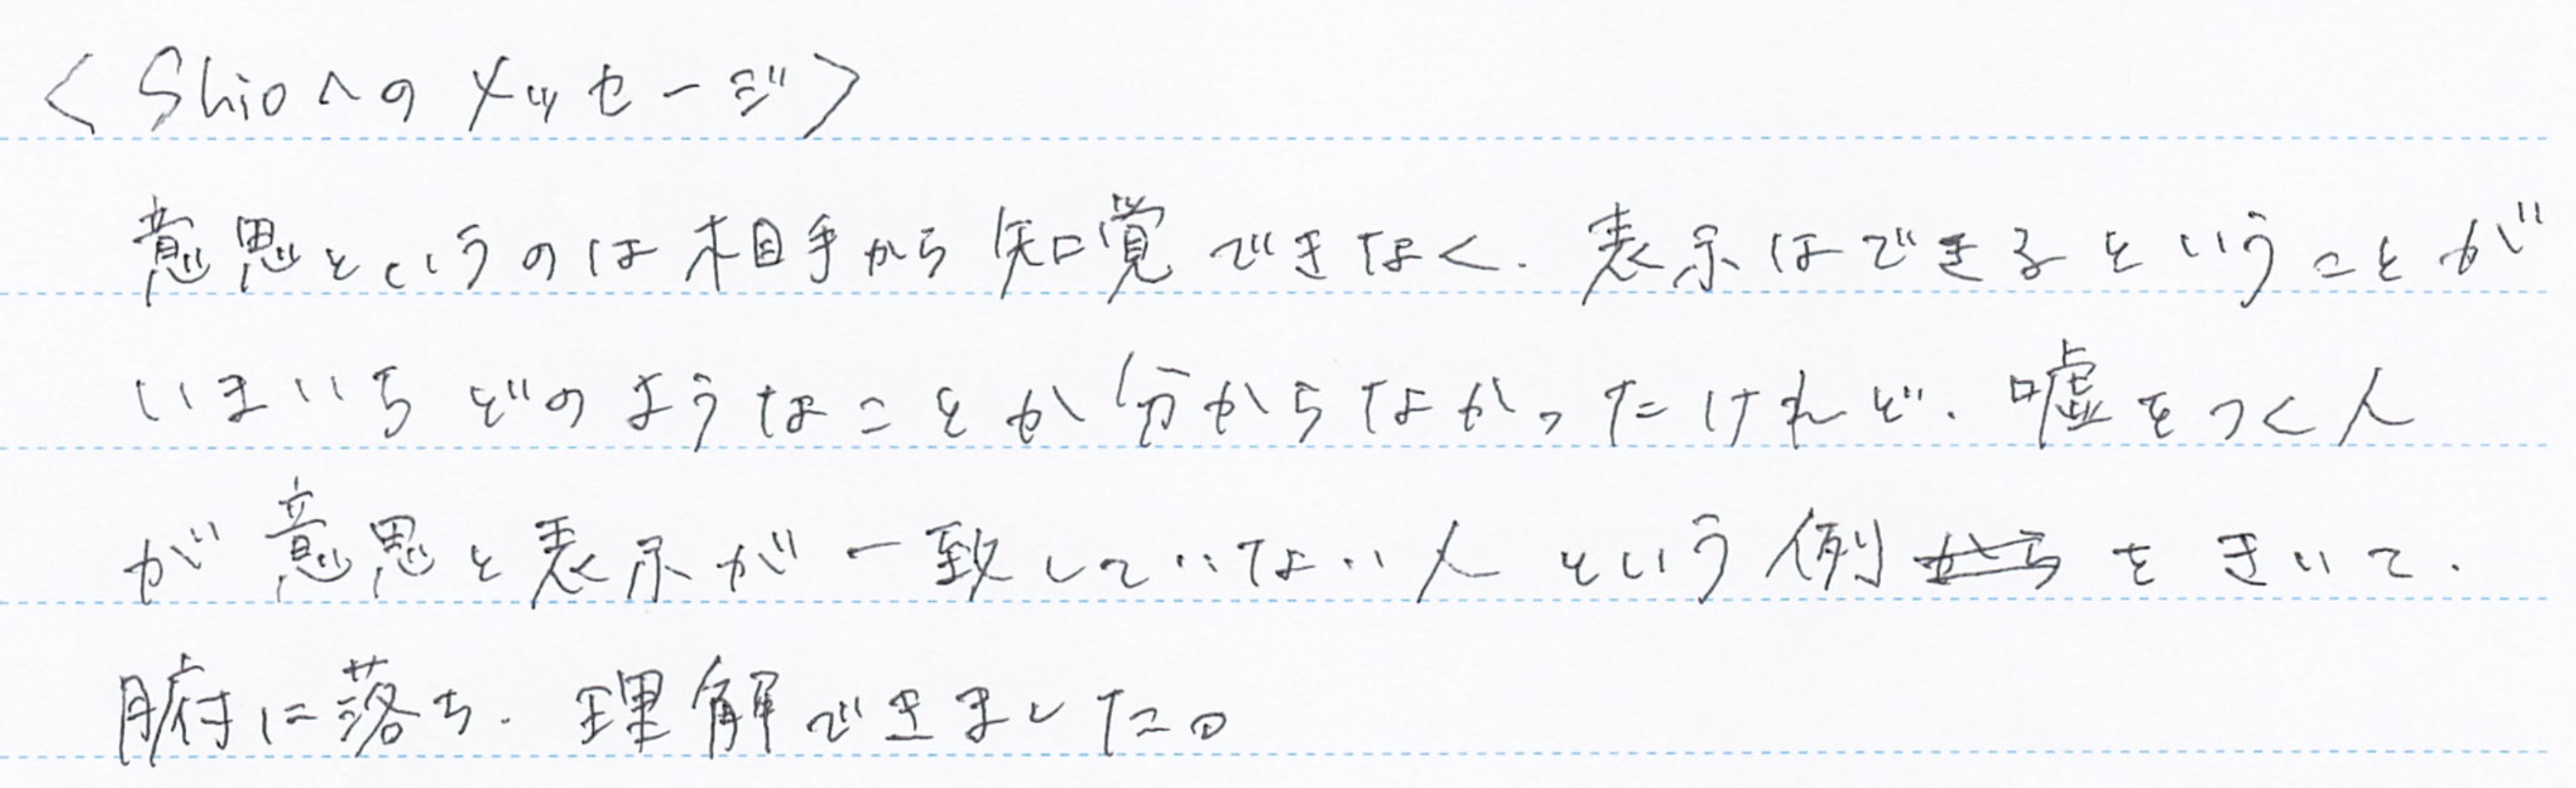 <Shioへのメッセージ>
意思というのは相手から知覚できなく、表示はできるということが
いまいちどのようなことか分からなかったけれど、嘘をつく人
が意思と表示が一致していない人という例からをきいて、
腑に落ち、理解できました。